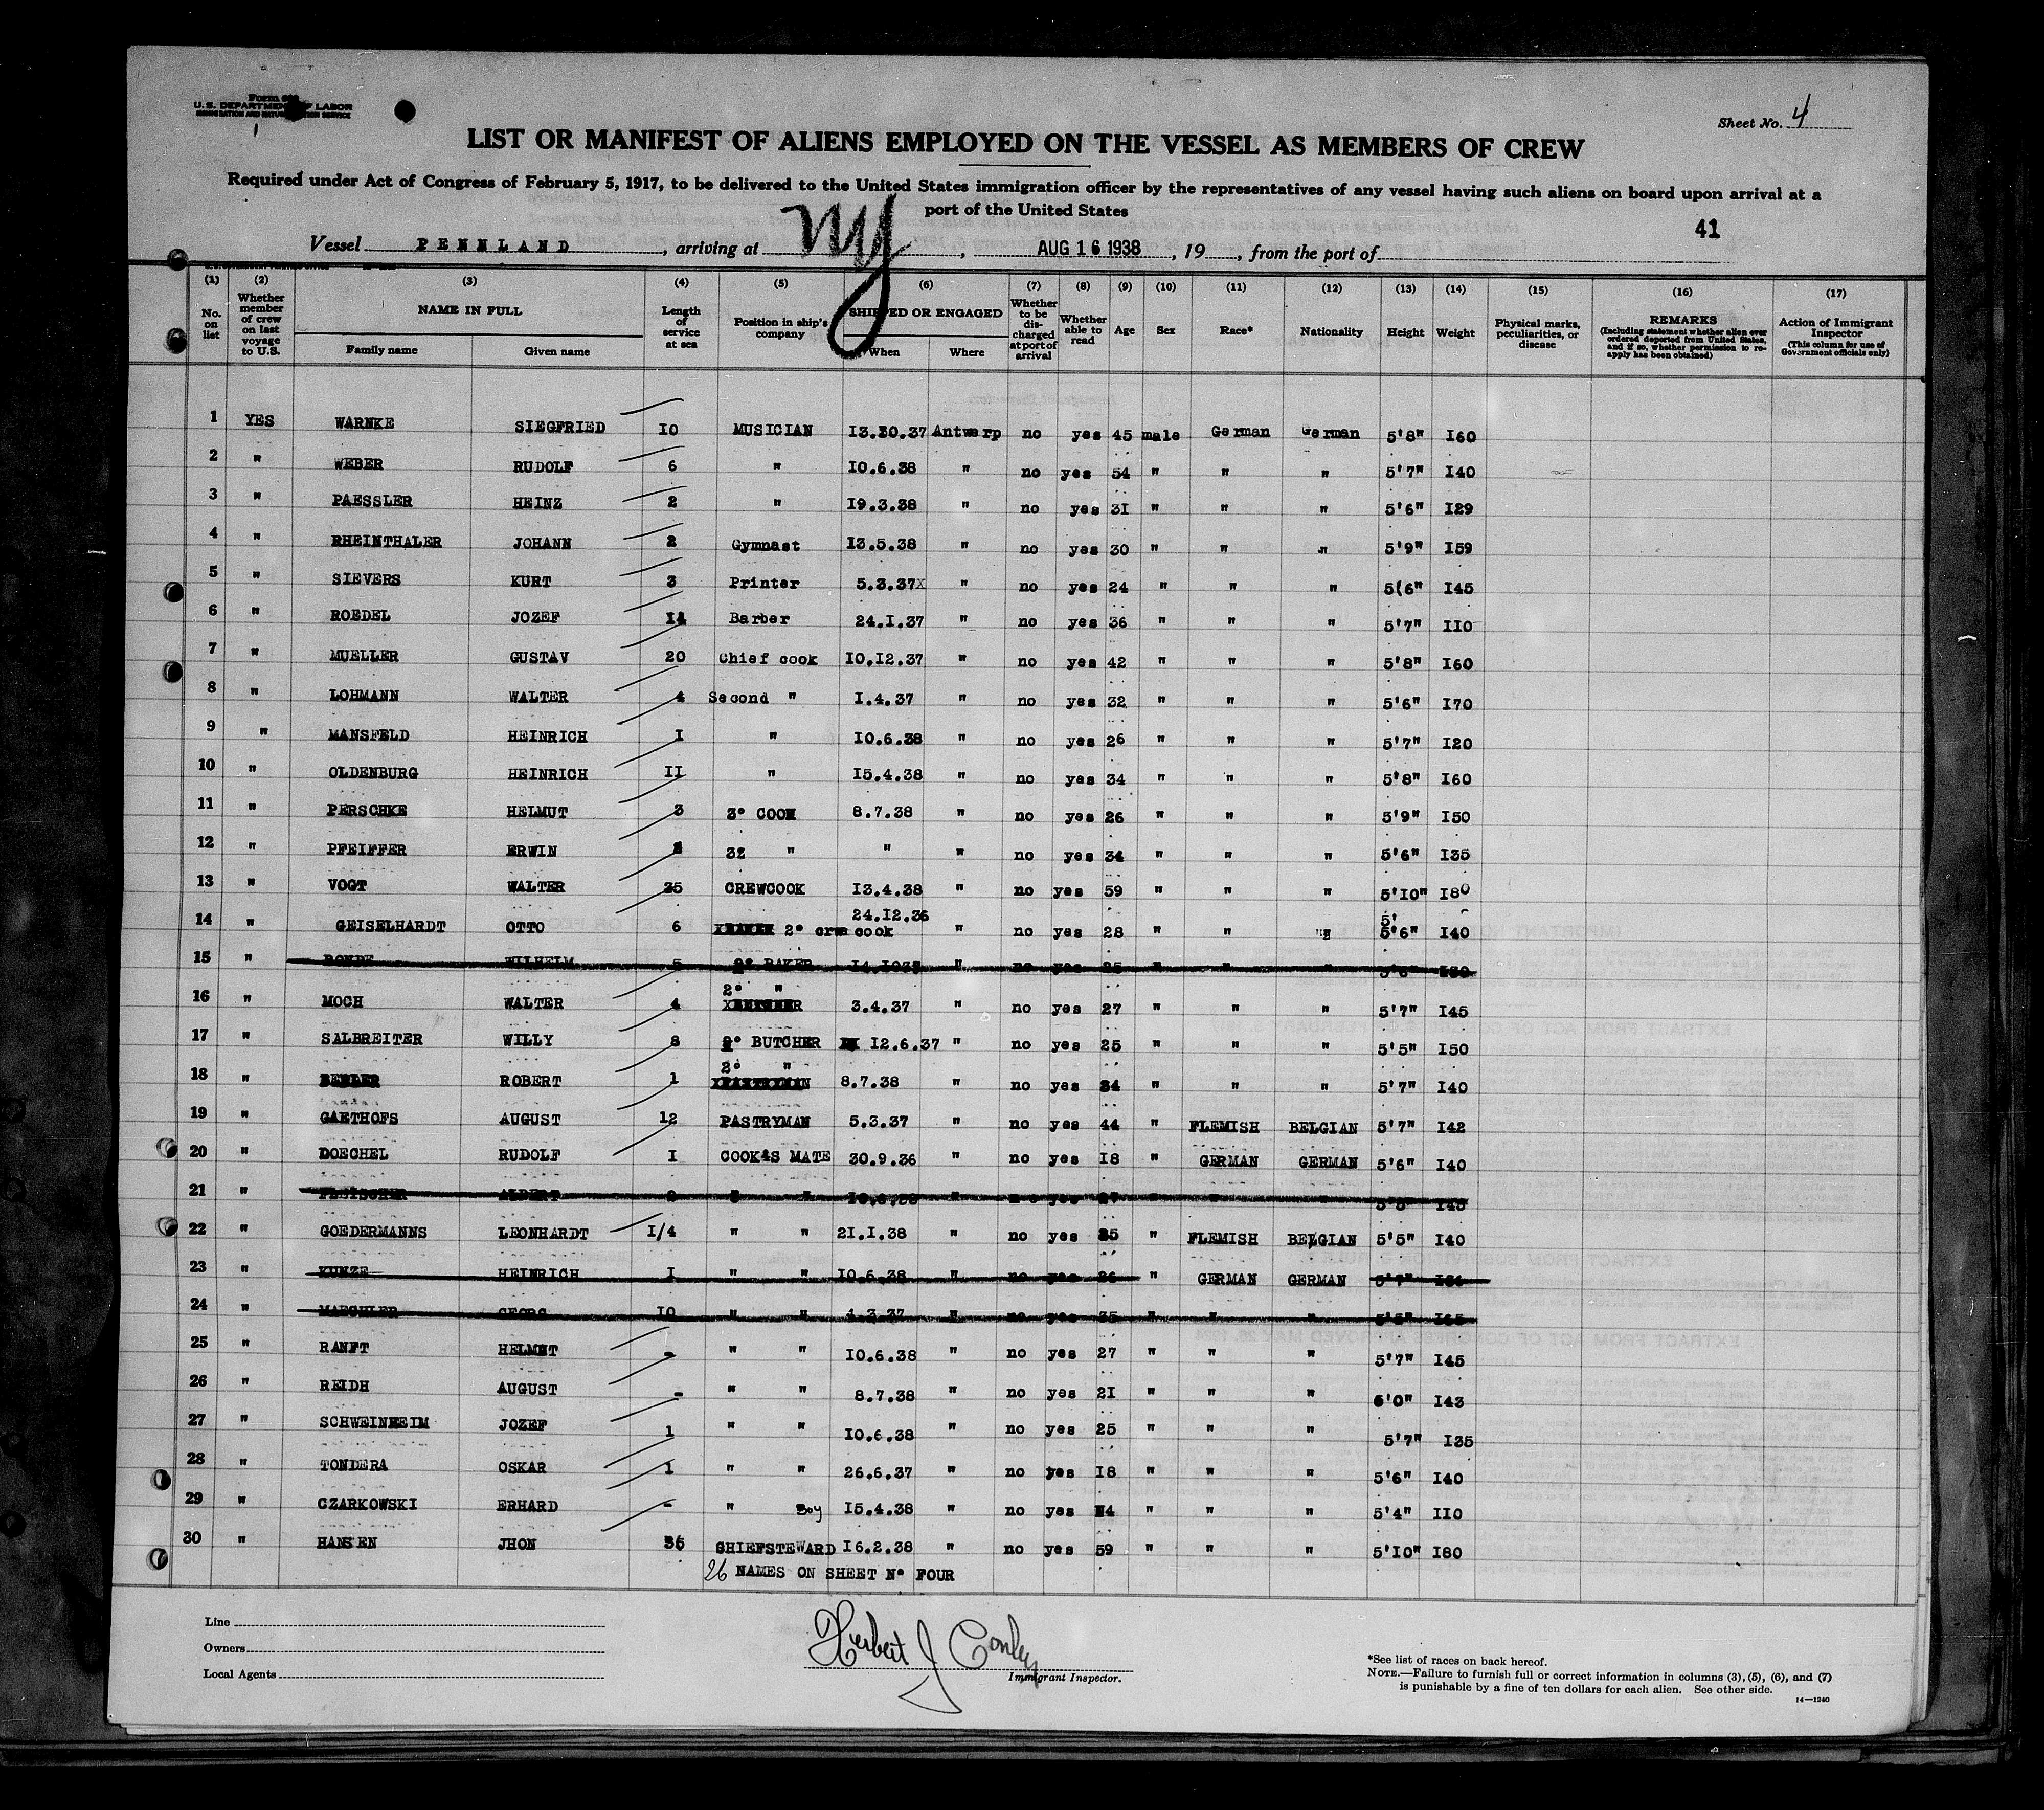 Form 6
U.S. DEPARTMENT OF LABOR
IMMIGRATION AND NATURALIZATION SERVICE
Sheet No. 4
LIST OR MANIFEST OF ALIENS EMPLOYED ON THE VESSEL AS MEMBERS OF CREW
Required under Act of Congress of February 5, 1917, to be delivered to the United States immigration officer by the representatives of any vessel having such aliens on board upon arrival at a
port of the United States
41
Vessel PENNLAND, arriving at NY, AUG 16 1938, 19, from the port of
(1) (2) (3) (4) (5) (6) (7) (8) (9) (10) (11) (12) (13) (14) (15) (16) (17)
No. on list
Whether member of crew on last voyage to U.S.
NAME IN FULL
Family name
Given name
Length of service at sea
Position in ship's company
SHIPPED OR ENGAGED
When
Where
Whether to be discharged at port of arrival
Whether able to read
Age
Sex
Race*
Nationality
Height
Weight
Physical marks, peculiarities, or disease
REMARKS
(Including statement whether alien ever ordered deported from United States, and if so, whether permission to reapply has been obtained)
Action of Immigrant Inspector
(This column for use of Government officials only)
1 YES WARNKE SIEGFRIED I0 MUSICIAN I3.30.37 Antwerp no yes 45 male German German 5'8" I60
2 " WEBER RUDOLF 6 " I0.6.38 " no yes 54 " " " 5'7" I40
3 " PAESSLER HEINZ 2 " I9.3.38 " no yes 3I " " " 5'6" I29
4 " RHEINTHALER JOHANN 2 Gymnast I3.5.38 " no yes 30 " " " 5'9" I59
5 " SIEVERS KURT 3 Printer 5.3.37X " no yes 24 " " " 5(6" I45
6 " ROEDEL JOZEF I4 Barber 24.I.37 " no yes 36 " " " 5'7" II0
7 " MUELLER GUSTAV 20 Chief cook I0.I2.37 " no yes 42 " " " 5'8" I60
8 " LOHMANN WALTER 4 Second " I.4.37 " no yes 32 " " " 5'6" I70
9 " MANSFELD HEINRICH I " I0.6.38 " no yes 26 " " " 5'7" I20
10 " OLDENBURG HEINRICH II " I5.4.38 " no yes 34 " " " 5'8" I60
11 " PERSCHKE HELMUT 3 3° COOK 8.7.38 " no yes 26 " " " 5'9" I50
12 " PFEIFFER ERWIN 32 " " " no yes 34 " " " 5'6" I35
13 " VOGT WALTER 35 CREWCOOK I3.4.38 " no yes 59 " " " 5'10" I80
14 " GEISELHARDT OTTO 6 2° crw cook 24.I2.36 " no yes 28 " " " 5'6" I40
15 " WILHELM 5 2° BAKER I4.I037 " no yes 25 " " " 5'6"
16 " MOCH WALTER 4 2° " 3.4.37 " no yes 27 " " " 5'7" I45
17 " SALBREITER WILLY 8 2° BUTCHER I2.6.37 " no yes 25 " " " 5'5" I50
18 " ROBERT 1 2° " XPASTRYMAN 8.7.38 " no yes 24 " " " 5'7" I40
19 " GAETHOFS AUGUST 12 PASTRYMAN 5.3.37 " no yes 44 " FLEMISH BELGIAN 5'7" I42
20 " DOECHEL RUDOLF I COOK&S MATE 30.9.36 " no yes I8 " GERMAN GERMAN 5'6" I40
21 " FLEISCHER ALBERT 2 " " " no yes 27 " " " 5'5" I45
22 " GOEDERMANNS LEONHARDT I/4 " " 2I.I.38 " no yes 35 " FLEMISH BELGIAN 5'5" I40
23 " KUNZE HEINRICH I " " I0.6.38 " no yes 26 " GERMAN GERMAN 5'7"
24 " MAECHLER GEORG I0 " " 4.3.37 " no yes 35 " " " 5'5" I65
25 " RANFT HELMUT - " " I0.6.38 " no yes 27 " " " 5'7" I45
26 " REIDH AUGUST - " " 8.7.38 " no yes 2I " " " 6'0" I43
27 " SCHWEINHEIM JOZEF 1 " " I0.6.38 " no yes 25 " " " 5'7" I35
28 " TONDERA OSKAR 1 " " 26.6.37 " no yes I8 " " " 5'6" I40
29 " CZARKOWSKI ERHARD - " Boy I5.4.38 " no yes " " " 5'4" II0
30 " HANSEN JHON 36 SHIEFSTEWARD I6.2.38 " no yes 59 " " " 5'I0" I80
26 NAMES ON SHEET N° FOUR
Line
Owners
Local Agents
Herbert J Conley
Immigrant Inspector.
*See list of races on back hereof.
NOTE.—Failure to furnish full or correct information in columns (3), (5), (6), and (7)
is punishable by a fine of ten dollars for each alien. See other side.
14—1240